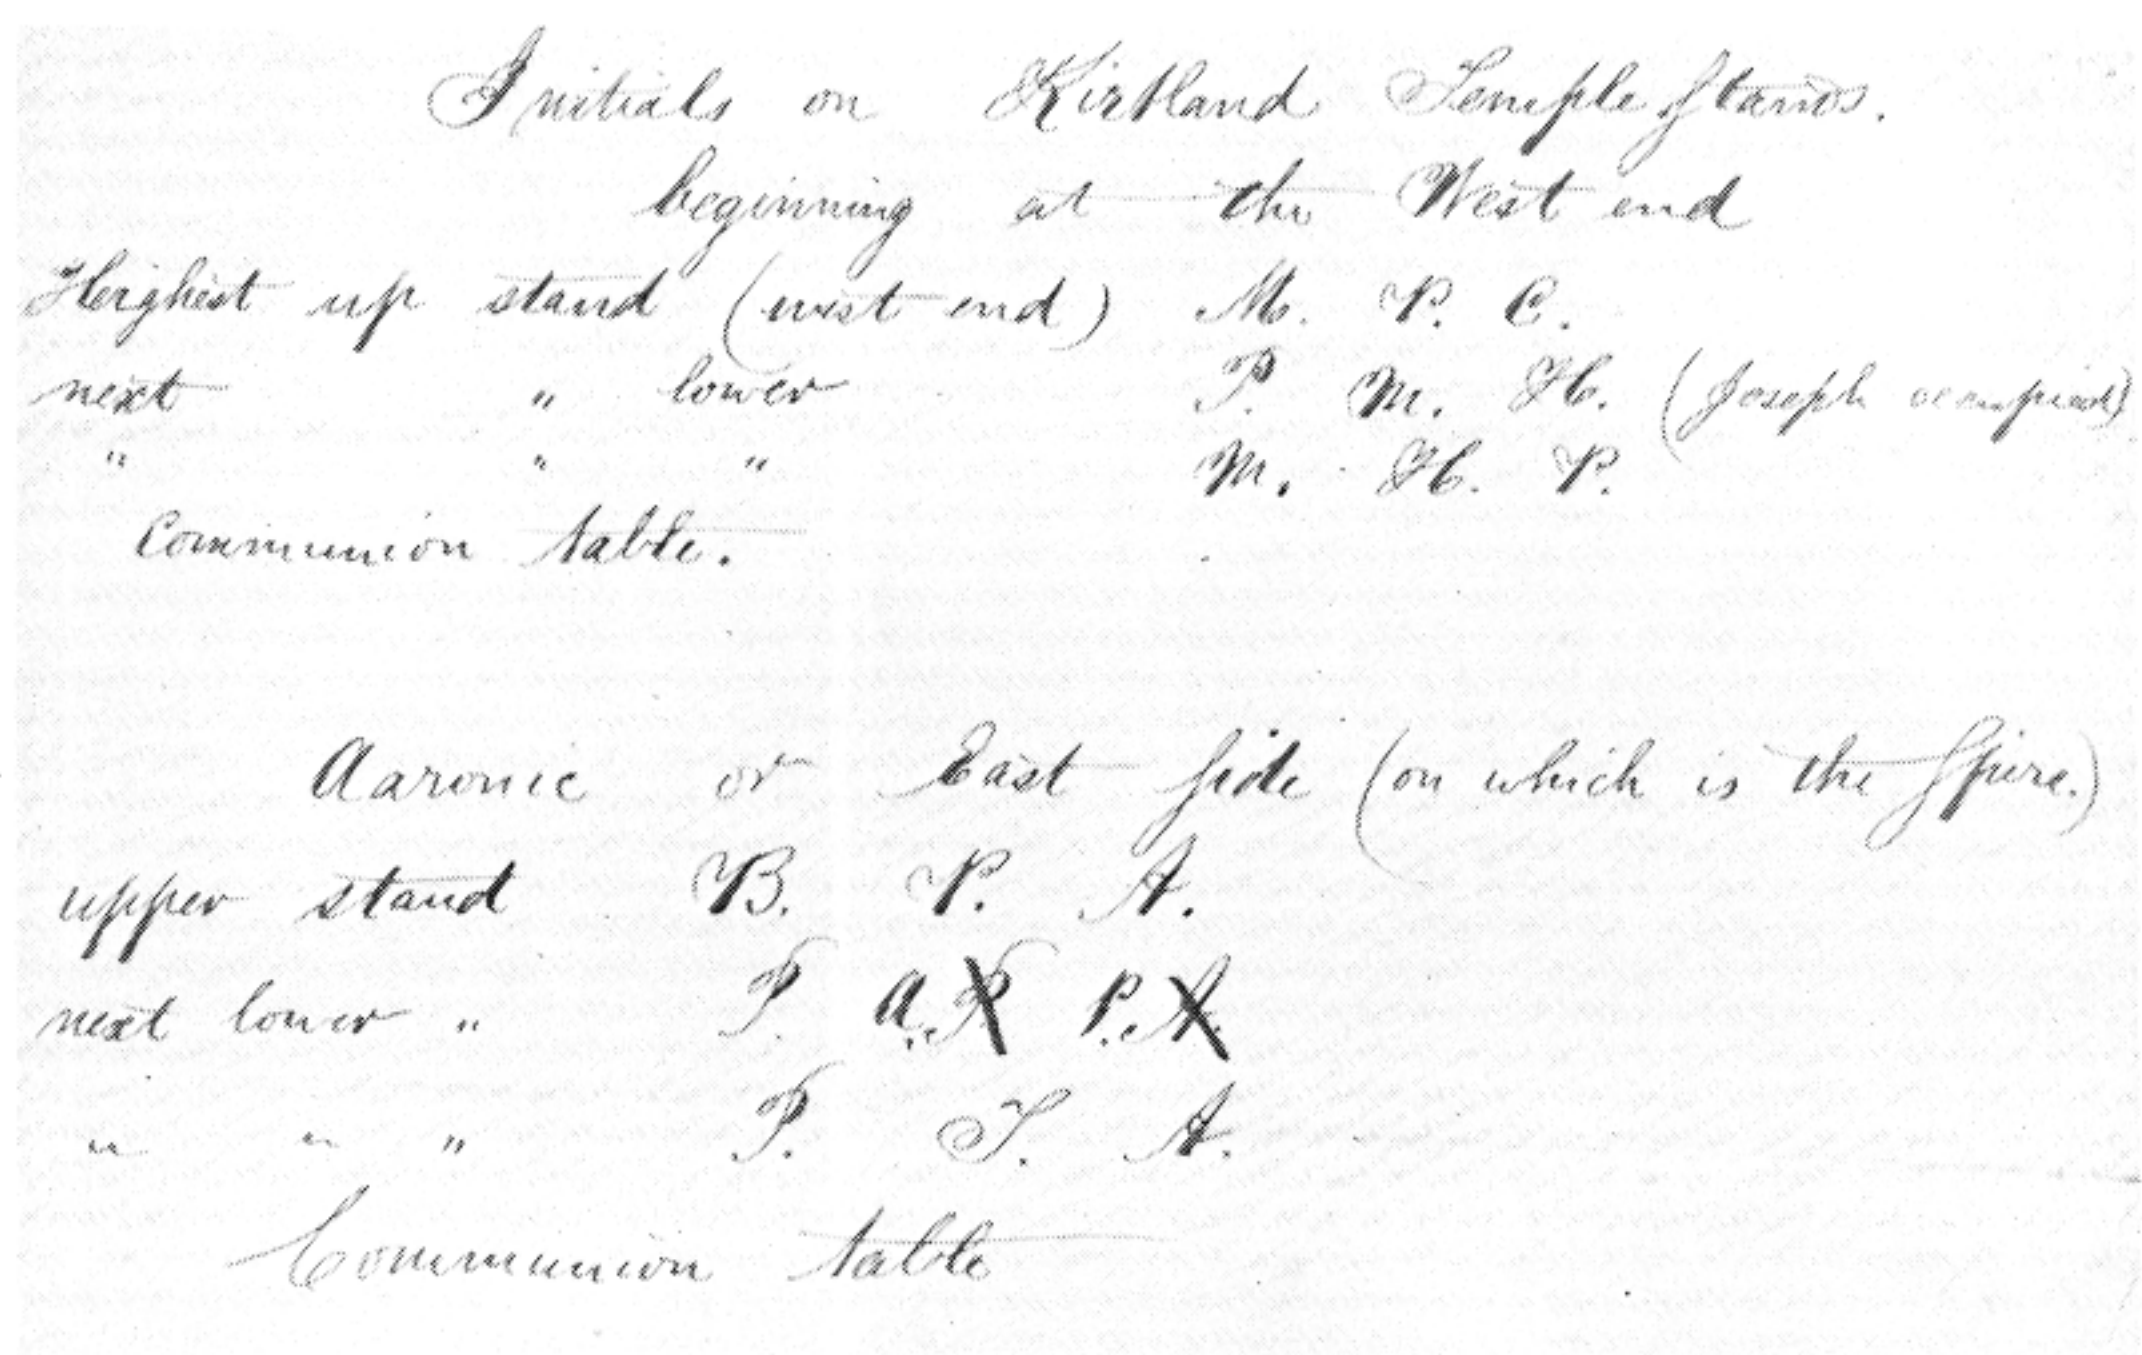 Initials on Kirtland Temple Stands.
beginning at the West end
Heighest up stand (west end) M. P. C.
next " lower P. M. H. (Joseph occupied)
" " " M. H. P.
Communion table.
Aaronic or East Side (on which is the Spire.)
upper stand B. P. A.
next lower " P A. P P. A.
" " " P. T. A.
Communion table